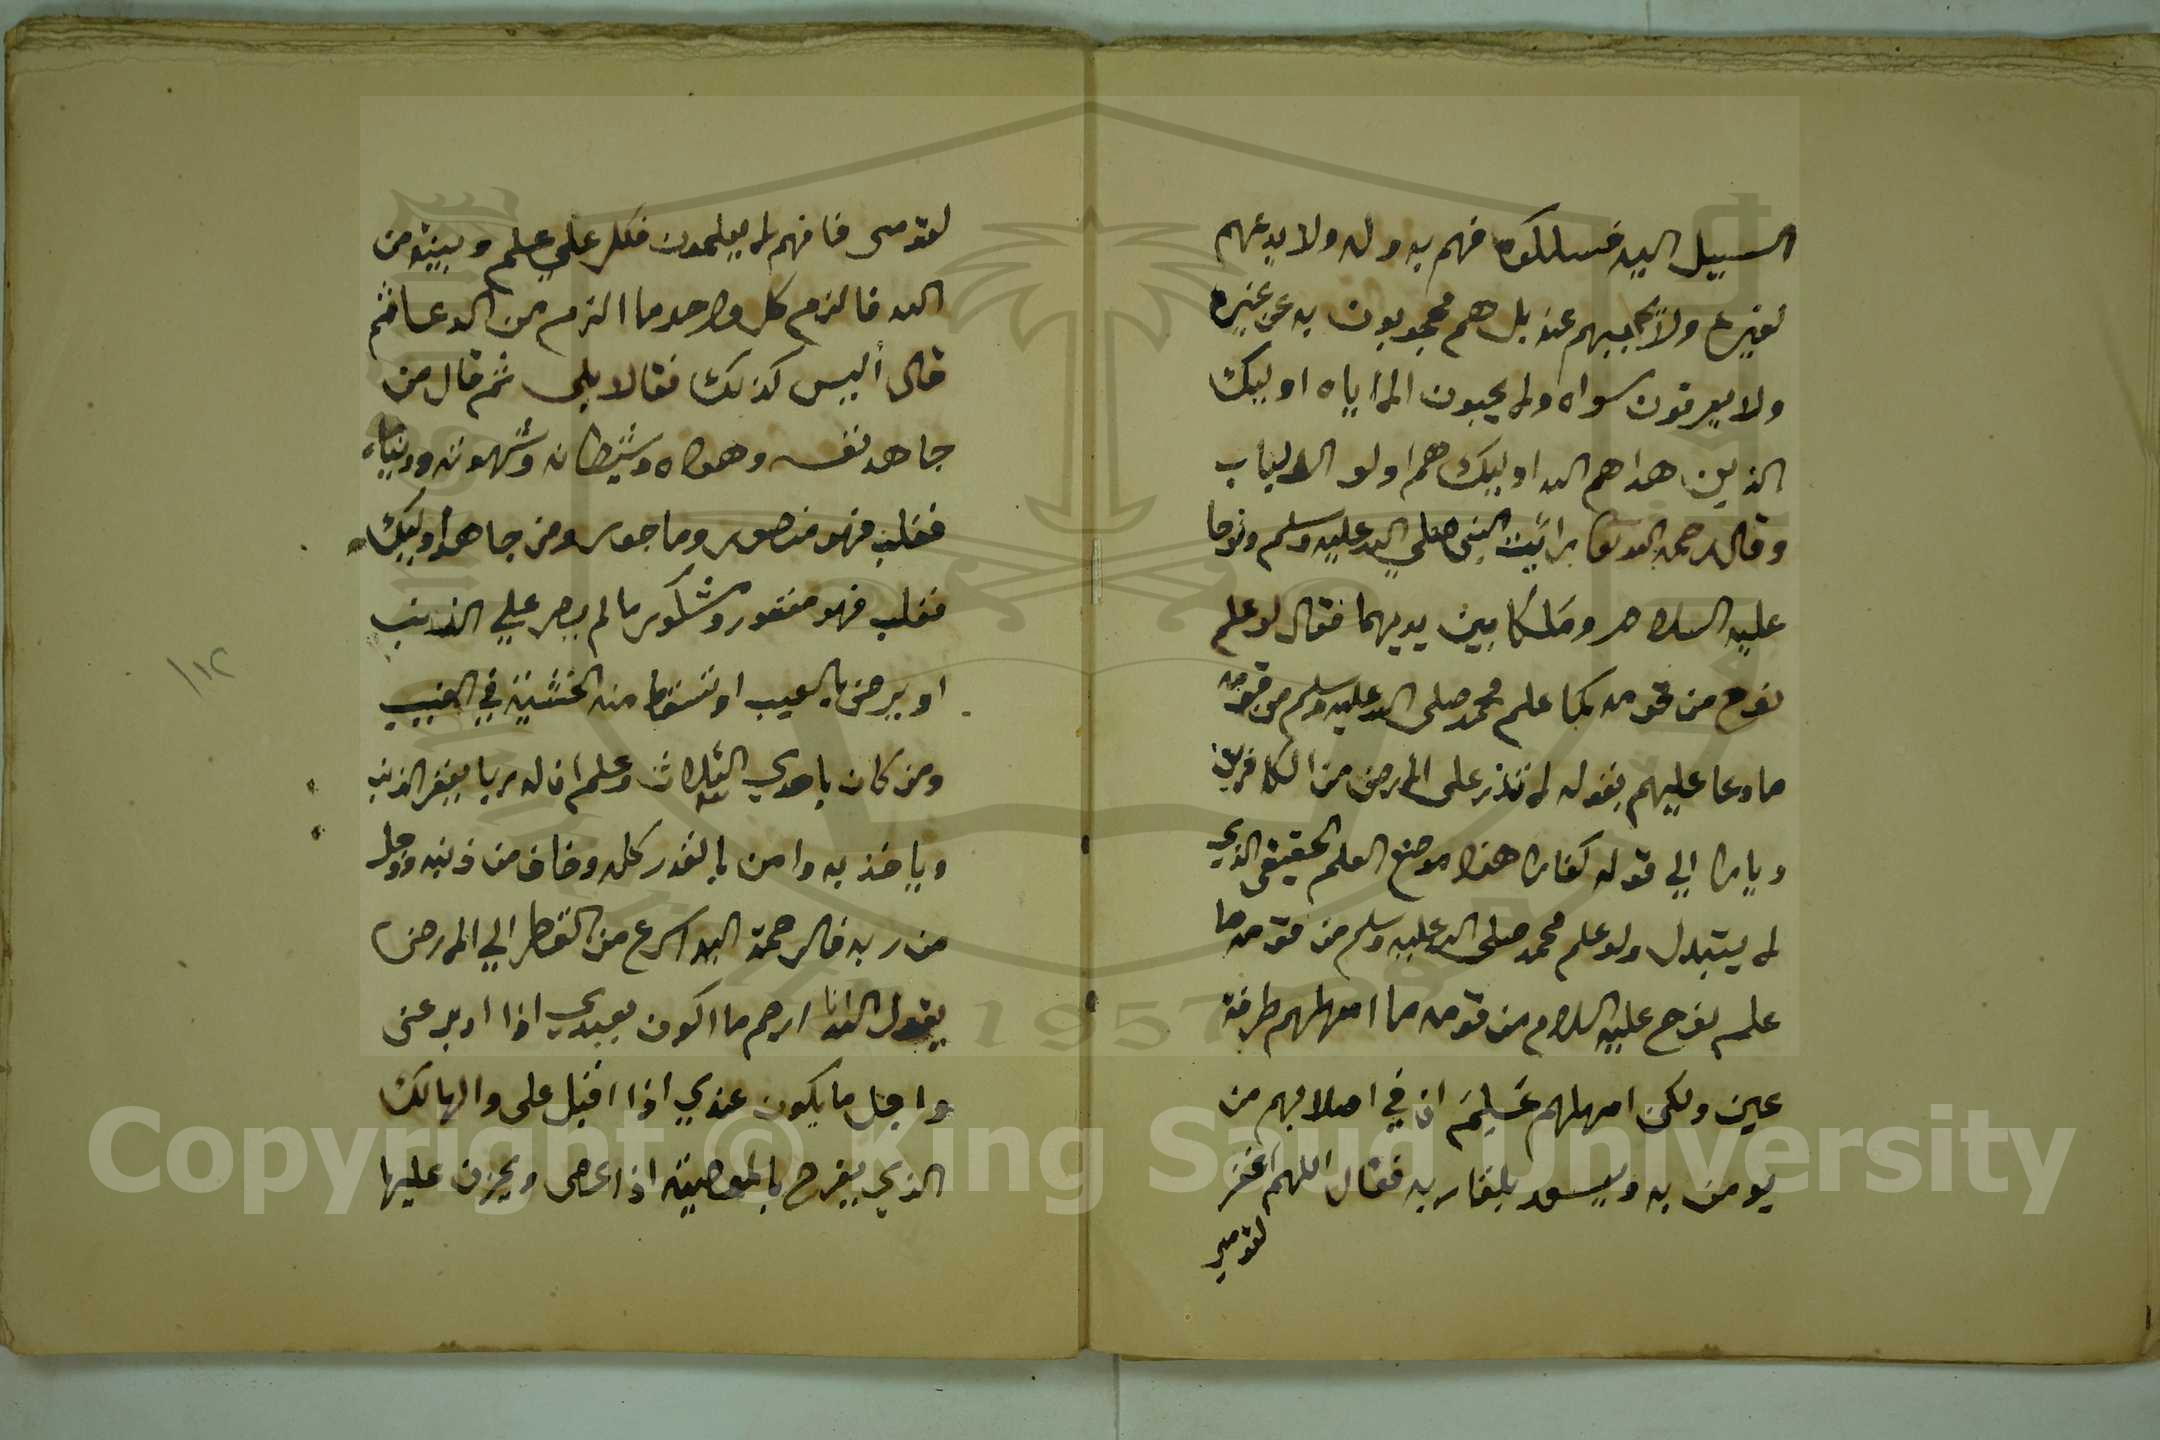 السبيل اليه فسلكوه فهم به وله ولا يدعهم
لغيره ولا يحجبهم عنه بل هم محجوبون به عن غيره
ولا يعرفون سواه ولا يحبون الا اياه اوليك
الذين هداهم الله اوليك هم اولو الالباب
وقال رحمه الله تعا رائيت النبى صلي الله عليه وسلم ونوحا
عليه السلام وملكا بين يديهما فقال لو علم
نوح من قومه كما علم محمد صلى الله عليه وسلم من قومه
ما دعا عليهم بقوله لا تذر على الارض من الكافرين
ديارا الي قوله كفارا هذا موضع العلم الحقيقى الذي
لا يتبدل ولو علم محمد صلى الله عليه وسلم من قومه ما
علم نوح عليه السلام من قومه ما امهلهم طرفة
عين ولكن امهلهم عَلِمَ ان في اصلابهم من
يومن به ويسعد بلقا ربه فقال اللهم اغفر
لقومى
لقومى فانهم لا يعلمون فكل علي علم وبينة من
الله فالزم كل واحد ما الزم من الدعا ثم
قال أليس كذلك فقالا بلى ثم قال من
جاهد نفسه وهواه وشيطانه وشهوته ودنياه
فغلب فهو منصور وماجور ومن جاهد اوليك
فغلب فهو مغفور ومشكور ما لم يصر علي الذنب
او يرضى بالعيب او تسقط منه الخشية في الغيب
ومن كان باحدي الثلاث وعلم ان له ربا يغفر الذنب
وياخذ به وامن بالقدر كله وخاف من ذنبه ووجل
من ربه فالرحمة اليه اسرع من القطر الي الارض
يقول الله انا ارحم ما اكون بعبدي اذا ادبر عنى
واجل ما يكون عندي اذا اقبل على والهالك
الذي يفرح بالمعصية اذا عصى ويحزن عليها
١١٢
Copyright © King Saud University
1957